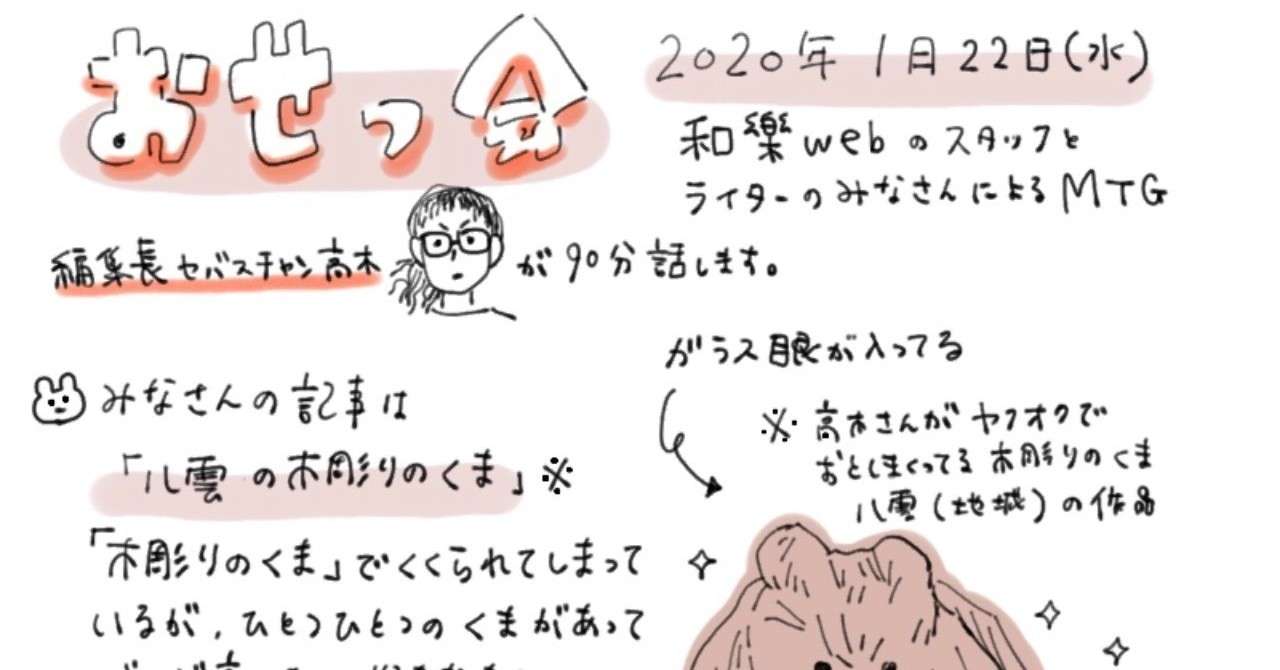 おせっ会
2020年1月22日(水)
和樂webのスタッフと
ライターのみなさんによるMTG
編集長セバスチャン高木が90分話します。
ガラス眼が入ってる
みなさんの記事は
「八雲の木彫りのくま」※
※高木さんがヤフオクで
おとしまくってる木彫りのくま
八雲(地域)の作品
「木彫りのくま」でくくられてしまって
いるが、ひとつひとつのくまがあって